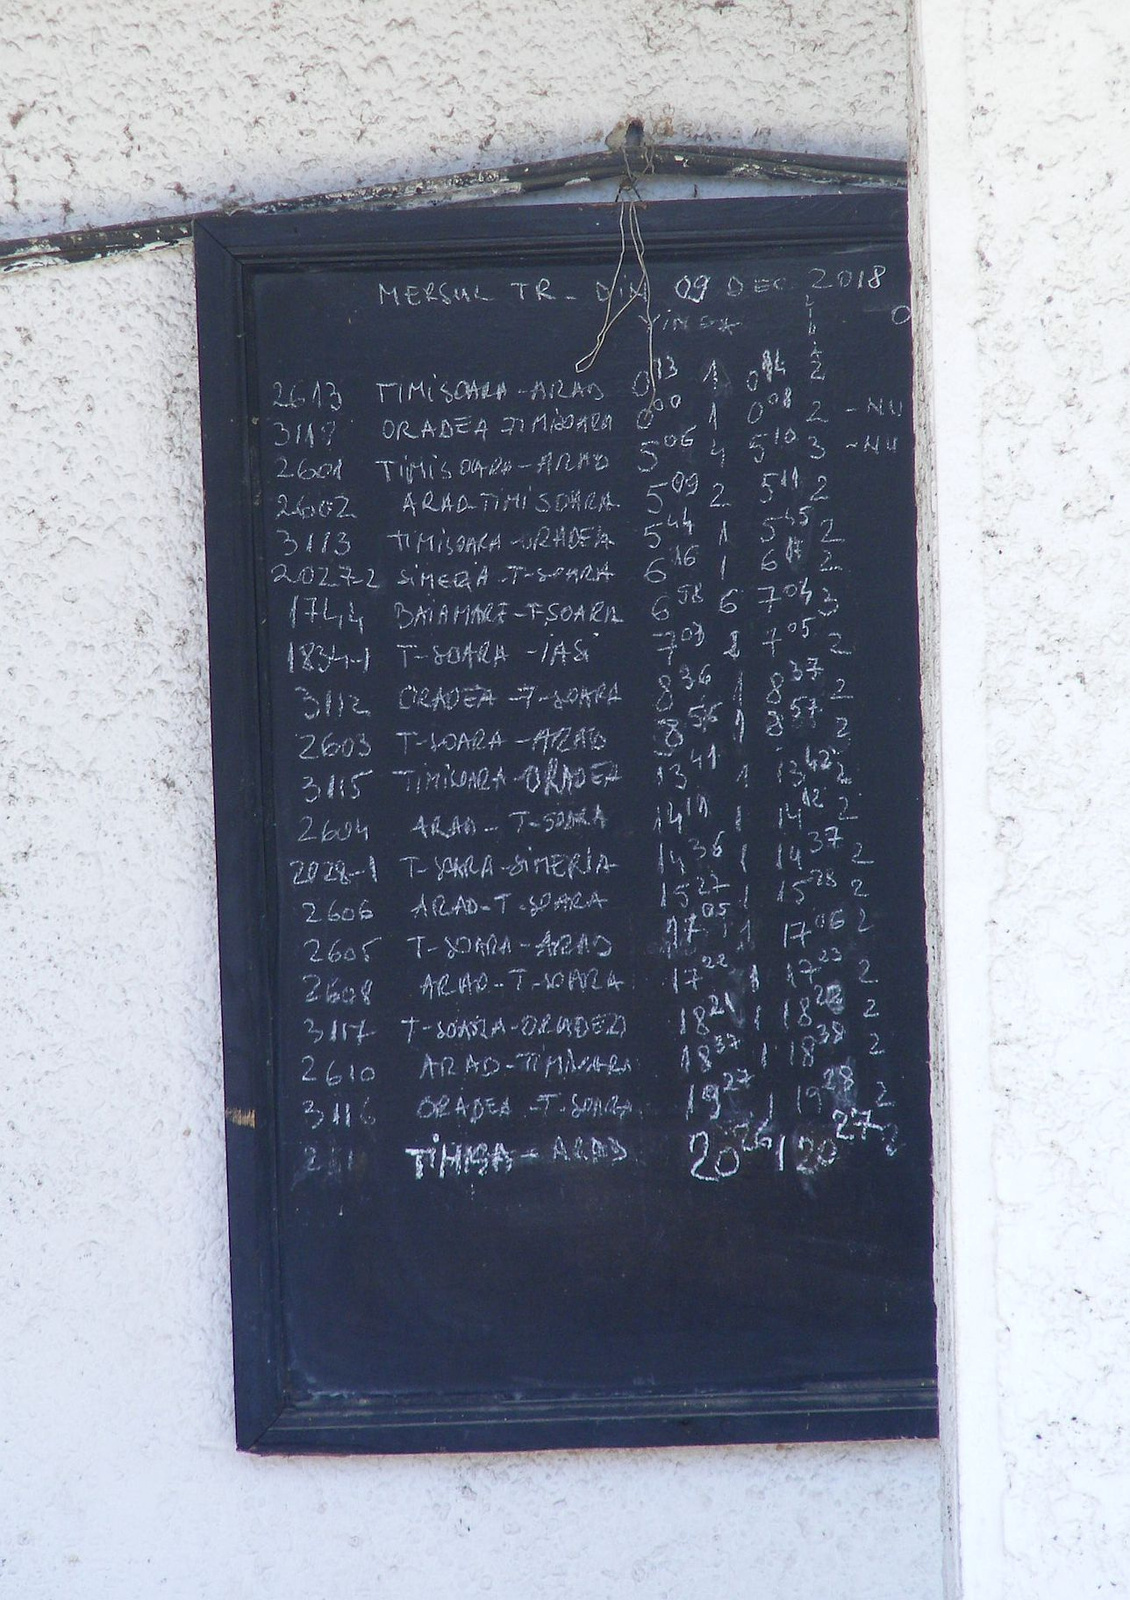 MERSUL TR. DIN 09 DEC. 2018
2613 TIMISOARA-ARAD 0 13 1 0 14 2
3119 ORADEA TIMISOARA 0 00 1 0 01 2 -NU
2601 TIMISOARA-ARAD 5 06 4 5 10 3 -NU
2602 ARAD-TIMISOARA 5 09 2 5 11 2
3113 TIMISOARA-ORADEA 5 44 1 5 45 2
2027-2 SIMERIA-T-SOARA 6 16 1 6 17 2
1744 BAIAMARE-T-SOARA 6 58 6 7 04 3
1834-1 T-SOARA-IASI 7 05 2
3112 ORADEA-T-SOARA 8 36 1 8 37 2
2603 T-SOARA-ARAD 8 56 1 8 57 2
3115 TIMISOARA-ORADEA 13 41 1 13 42 2
2604 ARAD-T-SOARA 14 11 1 14 12 2
2028-1 T-SOARA-SIMERIA 14 36 1 14 37 2
2606 ARAD-T-SOARA 15 27 1 15 28 2
2605 T-SOARA-ARAD 17 05 1 17 06 2
2608 ARAD-T-SOARA 17 22 1 17 23 2
3117 T-SOARA-ORADEA 18 21 1 18 22 2
2610 ARAD-TIMISOARA 18 37 1 18 38 2
3116 ORADEA-T-SOARA 19 27 1 19 28 2
TIMISA-ARAD 20 26 1 20 27 2